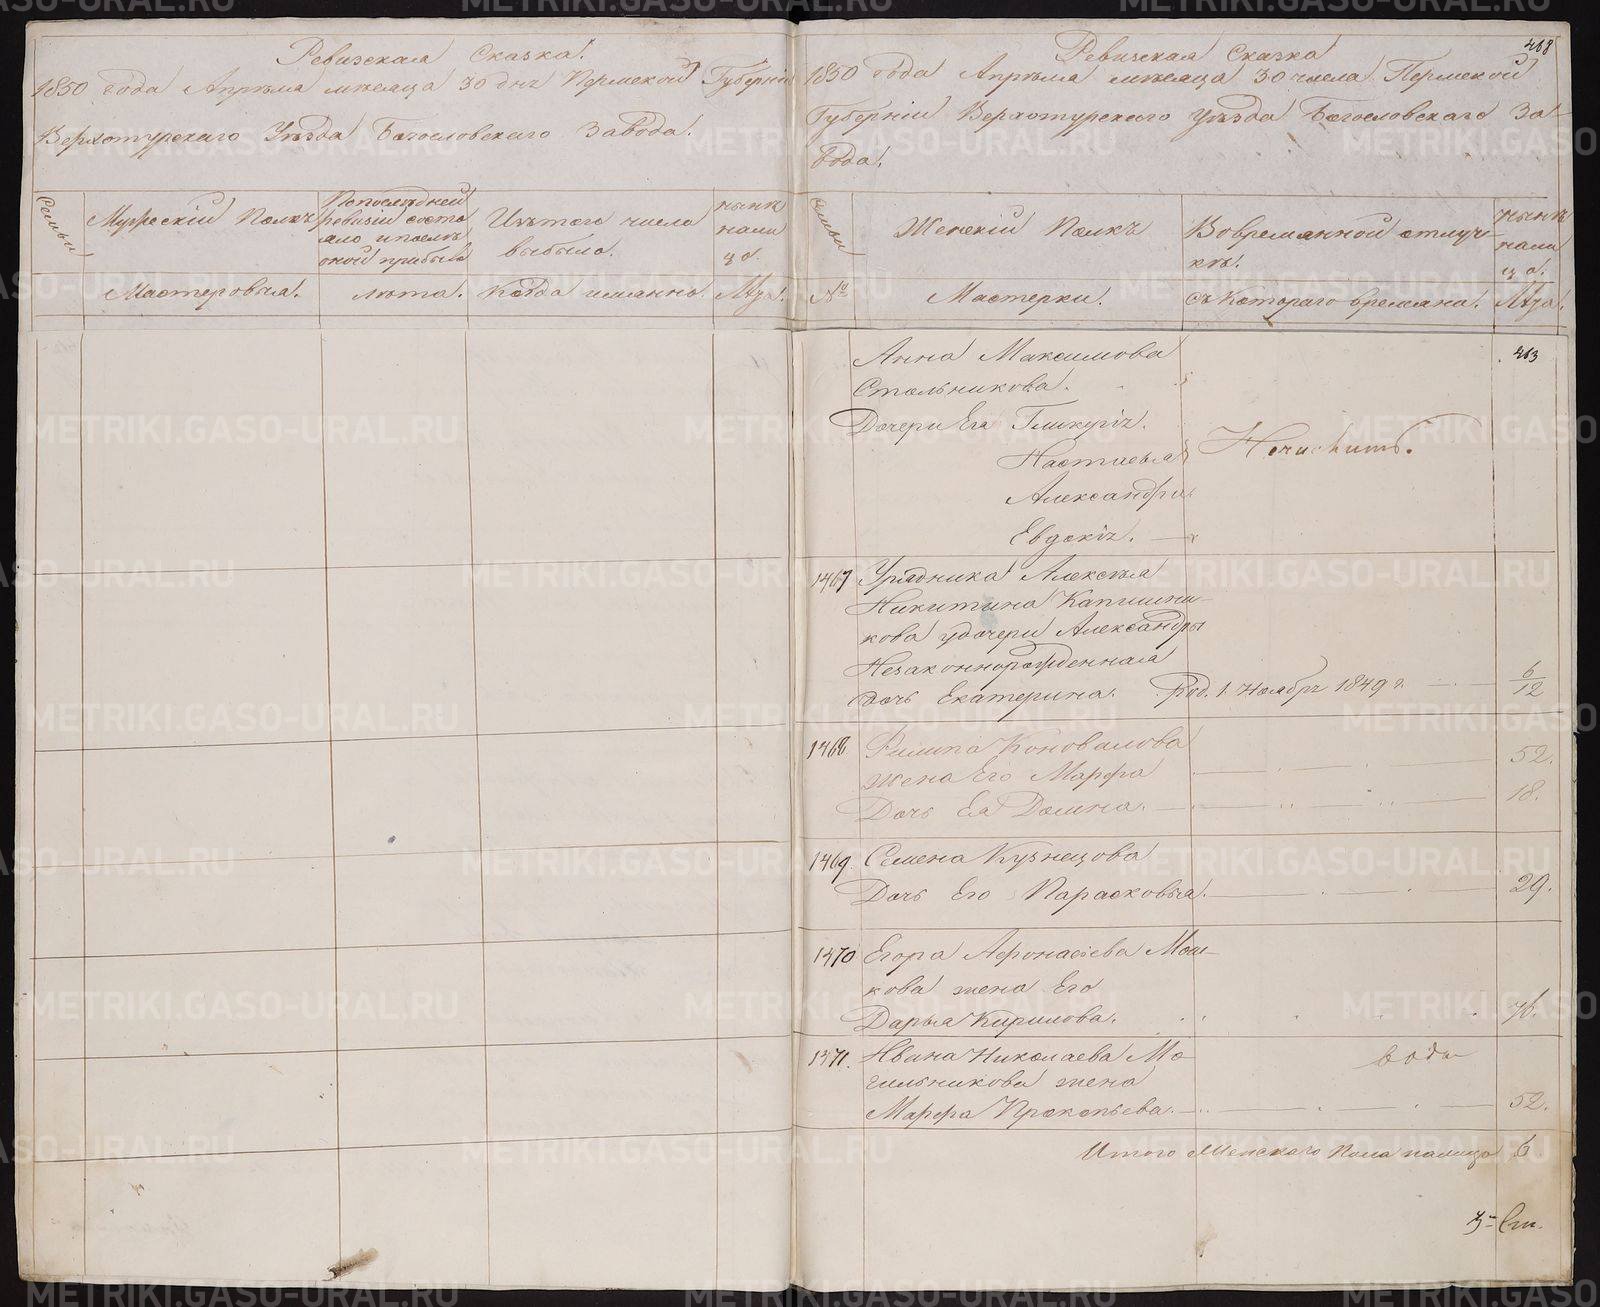 Ревизская Сказка.
1850 года Апреля месяца 30 дня Пермской Губернiи
Верхотурскаго Уезда Богословскаго Завода.
Семьи
Мужескiй Полъ
По последней
ревизiи состо
яло и после
оной прибыло
Изъ того числа
выбыло.
ныне
нали
цо.
Мастеровыя.
лета.
Когда именно.
Лета.
468
Ревизская Сказка
1850 года Апреля месяца 30 числа Пермской
Губернiи Верхотурскаго Уезда Богословскаго За-
вода.
Семьи
Женскiй Полъ
Во временной отлуч-
ке.
ныне
нали
цо.
№
Мастерки.
съ Котораго времяна.
Лета.
463
Анна Максимова
Стольникова.
Дочери Ея Гликерiя.
Настасья
Александра
Евдокiя.
1467 Урядника Алексея
Никитина
кова у дочери Александры
Незаконнорожденная
дочь Екатерина. Род. 1. Ноября 1849 г. 6/12
1468 Филипа Коновалова
жена Его Марфа 52.
Дочь Ея Домна. 18.
1469. Семена Кузнецова
Дочь Его Парасковья. 29.
1470 Егора Афонасiева Мош-
кова жена Его
Дарья Кирилова. 76.
1471. Ивана Николаева Мо
гильникова жена
Марфа Прокопьева. 52.
Итого Женскаго Пола налицо 6.
METRIKI.GASO-URAL.RU